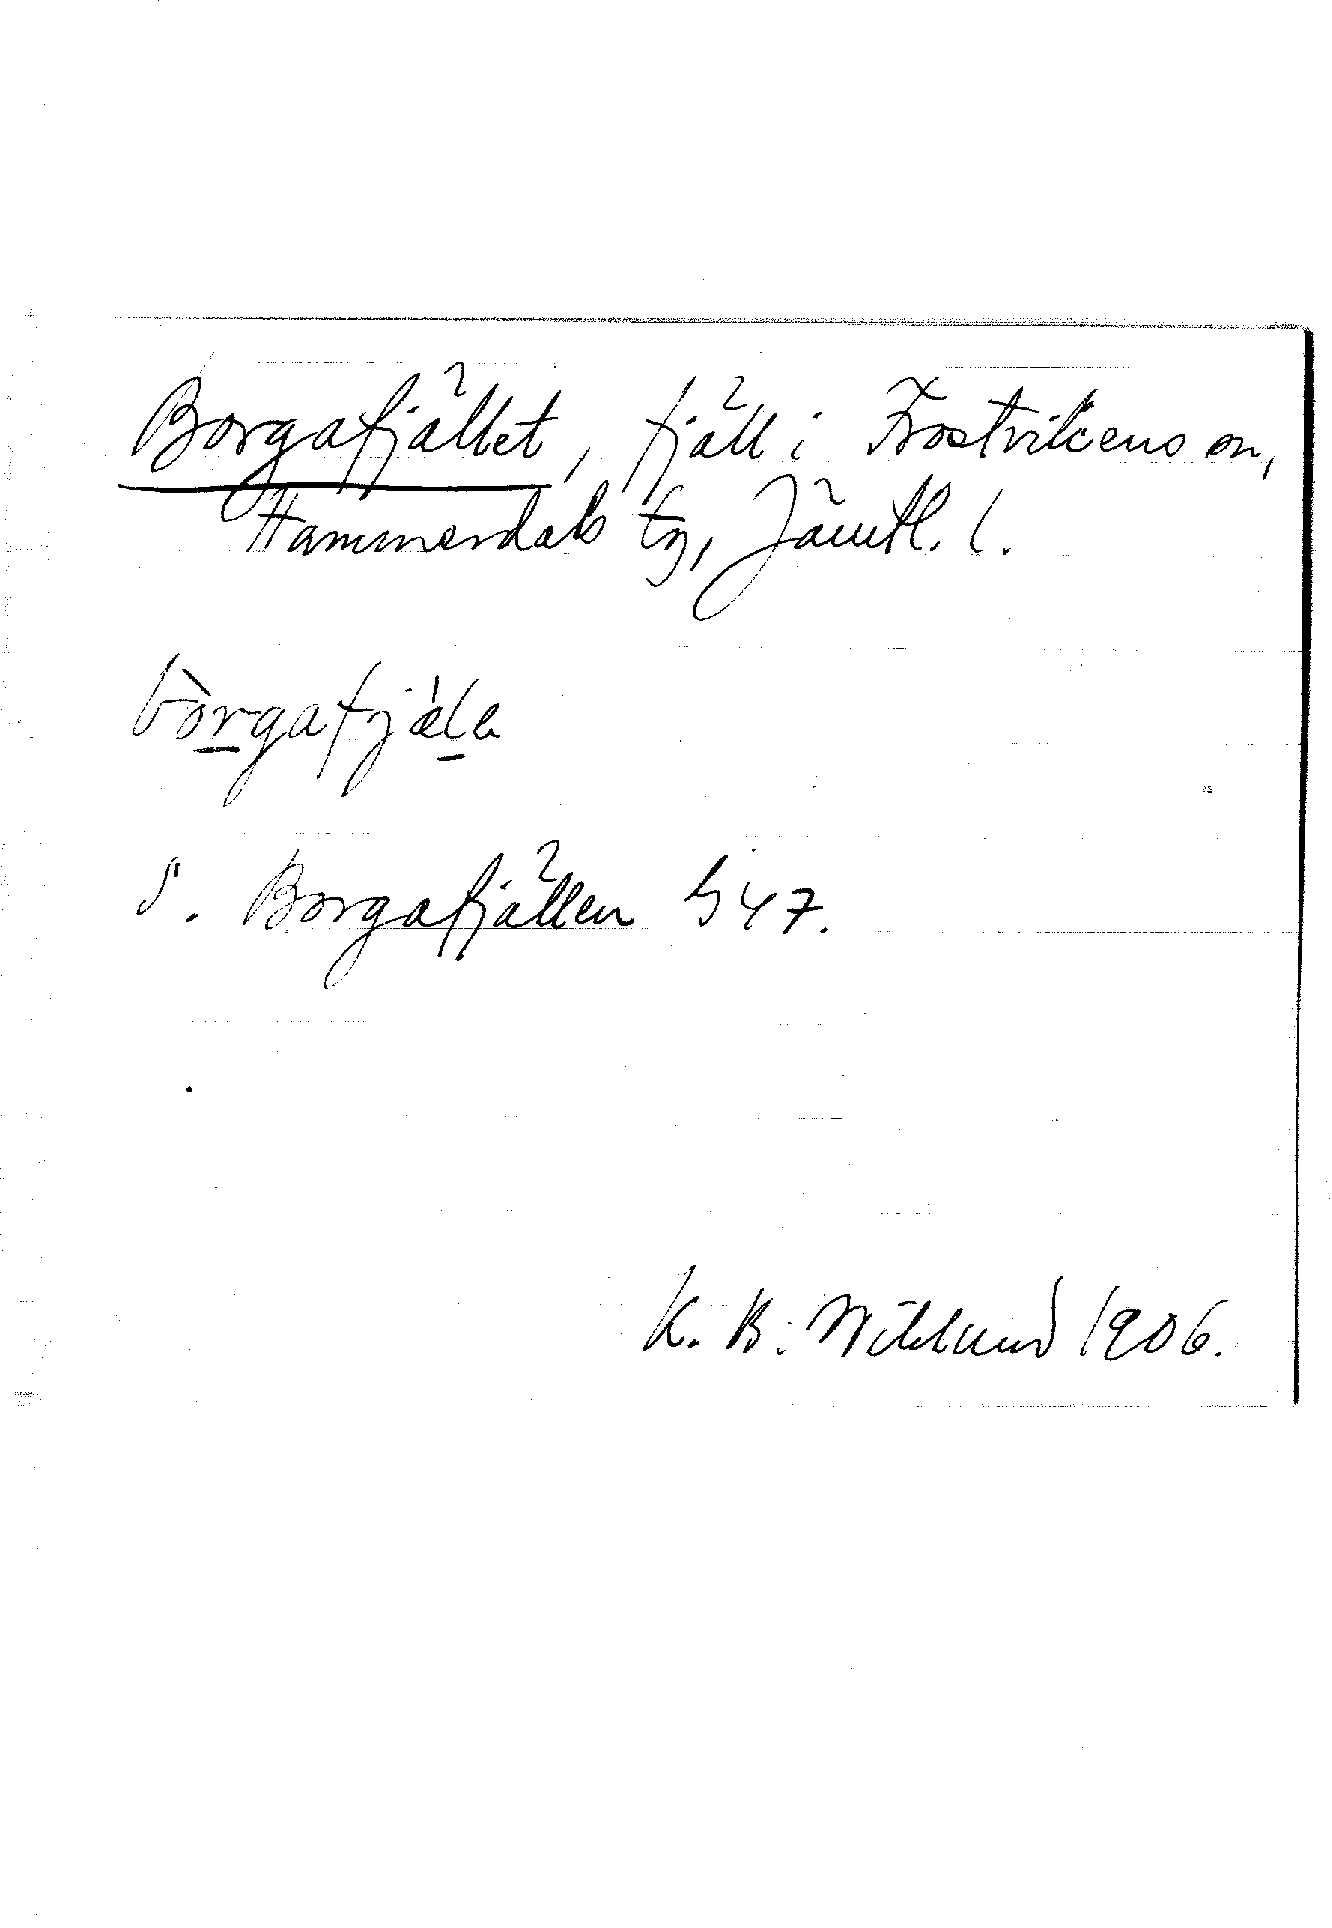 Borgafjället, fjäll i Frostvikens sn,
Hammerdals tg, Jämtl. l.
bòrgafjæ̀la
S. Borgafjällen 547.
K. B. Wiklund 1906.